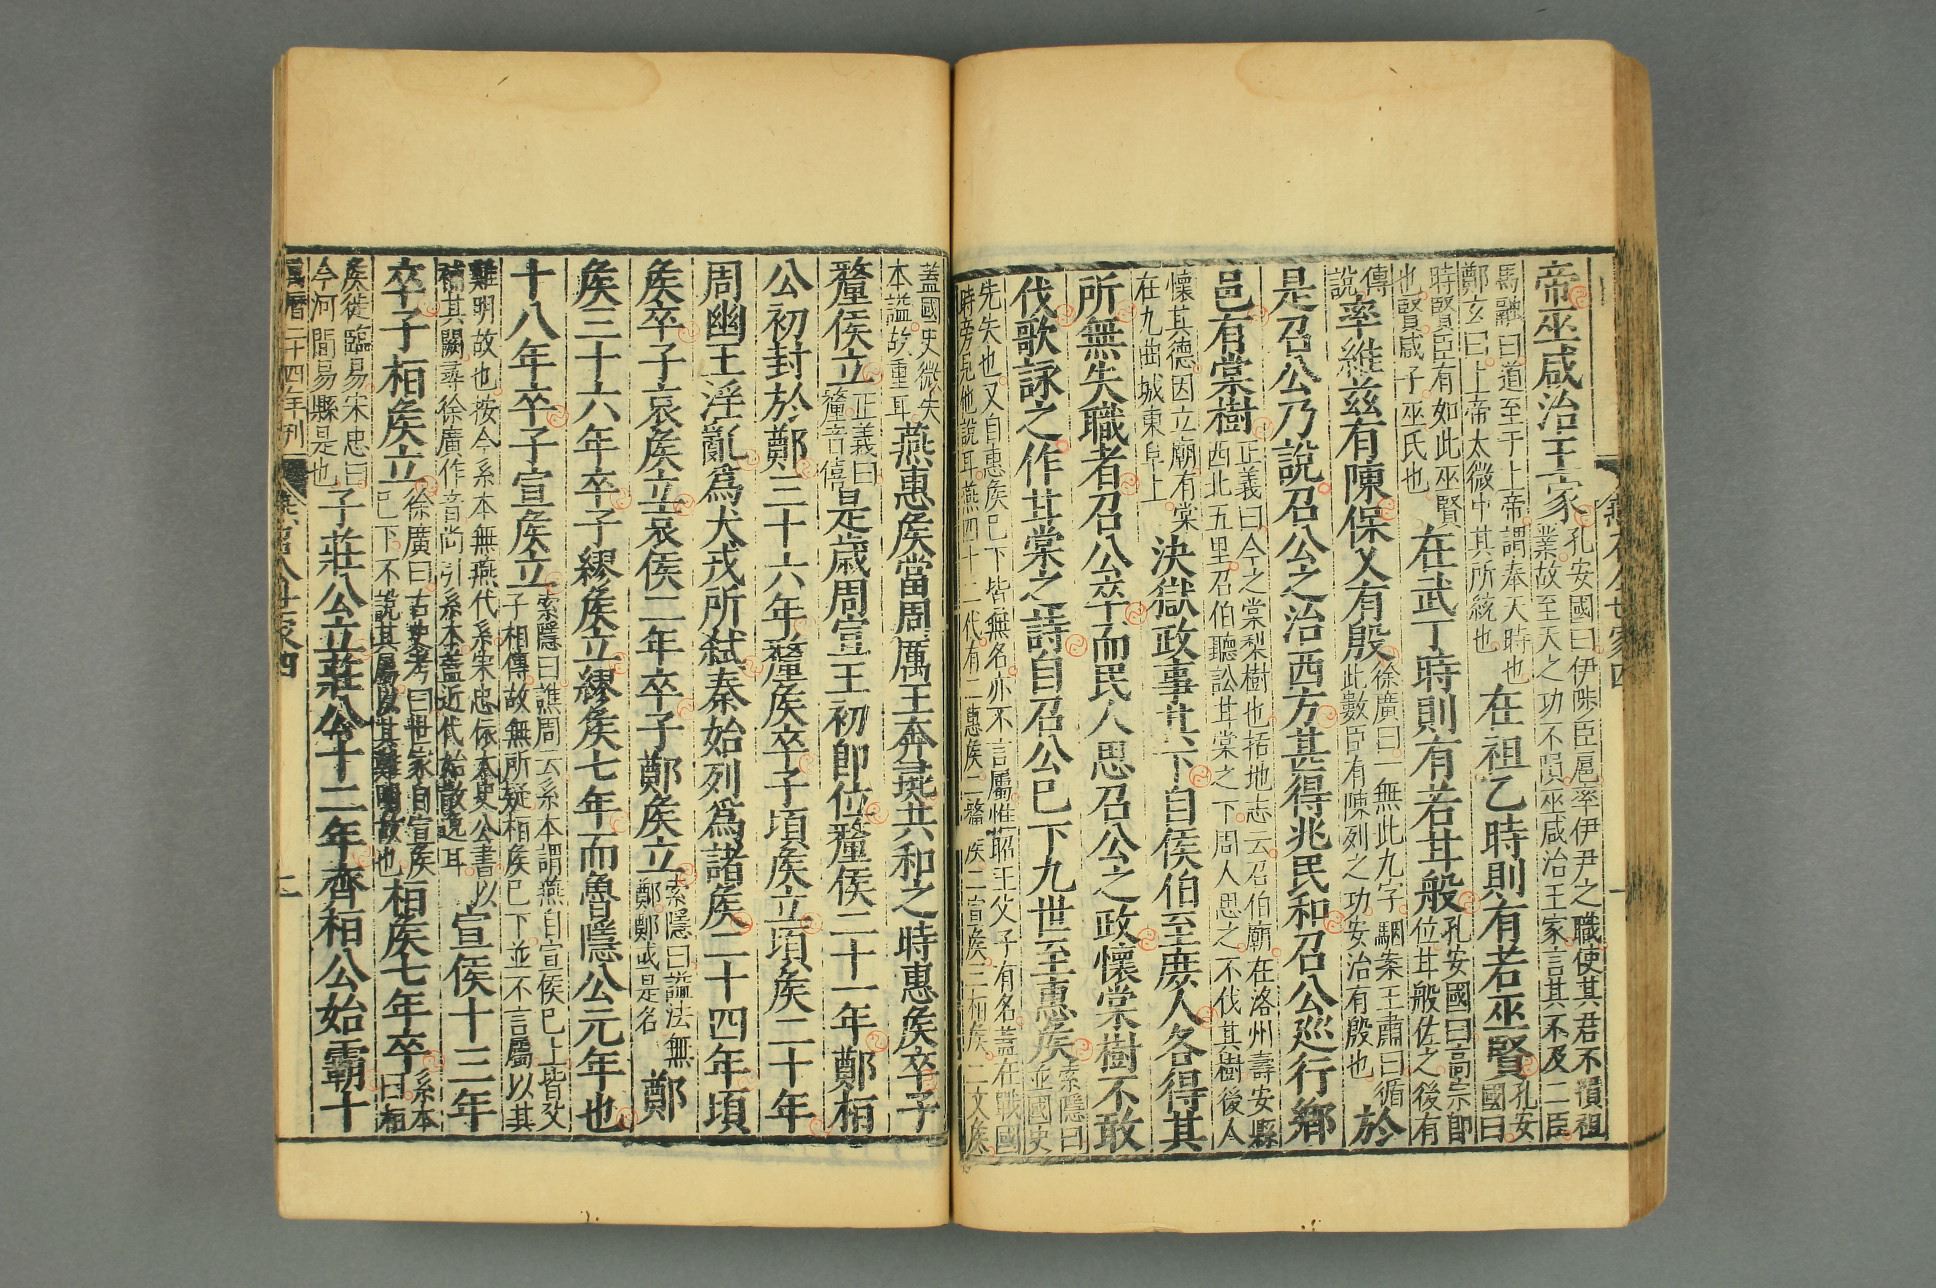 帝巫咸治王家孔安國曰伊陟臣扈率伊尹之職使其君不隕祖
業故至天之功不隕巫咸治王家言其不及二臣
馬融曰道至于上帝謂奉天時也
鄭玄曰上帝太微中其所統也
在祖乙時則有若巫賢孔安
國曰
時賢臣有如此巫賢
也賢咸子巫氏也
在武丁時則有若甘般孔安國曰高宗即
位甘般佐之後有
傳
說
率維兹有陳保乂有殷徐廣曰一無此九字駰案王肅曰循
此數臣有陳列之功安治有殷也
於
是召公乃說召公之治西方甚得兆民和召公巡行鄉
邑有棠樹正義曰今之棠梨樹也括地志云召伯廟在洛州壽安縣
西北五里召伯聽訟甘棠之下周人思之不伐其樹後人
懷其德因立廟有棠
在九曲城東阜上
決獄政事其下自侯伯至庶人各得其
所無失職者召公卒而民人思召公之政懷棠樹不敢
伐歌詠之作甘棠之詩自召公已下九世至惠侯索隱曰
並國史
先失也又自惠侯已下皆無名亦不言屬惟昭王父子有名蓋在戰國
時旁見他說耳燕四十二代有二惠侯二釐侯二宣侯三桓侯二文侯
蓋國史微失
本謚故重耳
燕惠侯當周厲王奔彘共和之時惠侯卒子
釐侯立正義曰
釐音僖
是歲周宣王初即位釐侯二十一年鄭桓
公初封於鄭三十六年釐侯卒子頃侯立頃侯二十年
周幽王淫亂爲犬戎所弒秦始列爲諸侯二十四年頃
侯卒子哀侯立哀侯二年卒子鄭侯立索隱曰謚法無
鄭鄭或是名
鄭
侯三十六年卒子繆侯立繆侯七年而魯隱公元年也
十八年卒子宣侯立索隱曰譙周云系本謂燕自宣侯已上皆父
子相傳故無所疑桓侯已下並不言屬以其
難明故也按今系本無燕代系宋忠依太史公書以
補其闕尋徐廣作音尚引系本蓋近代始散逸耳
宣侯十三年
卒子桓侯立徐廣曰古史考曰世家自宣侯
已下不說其屬以其難明故也
桓侯七年卒系本
曰桓
侯徙臨易宋忠曰
今河間易縣是也
子莊公立莊公十二年齊桓公始霸十